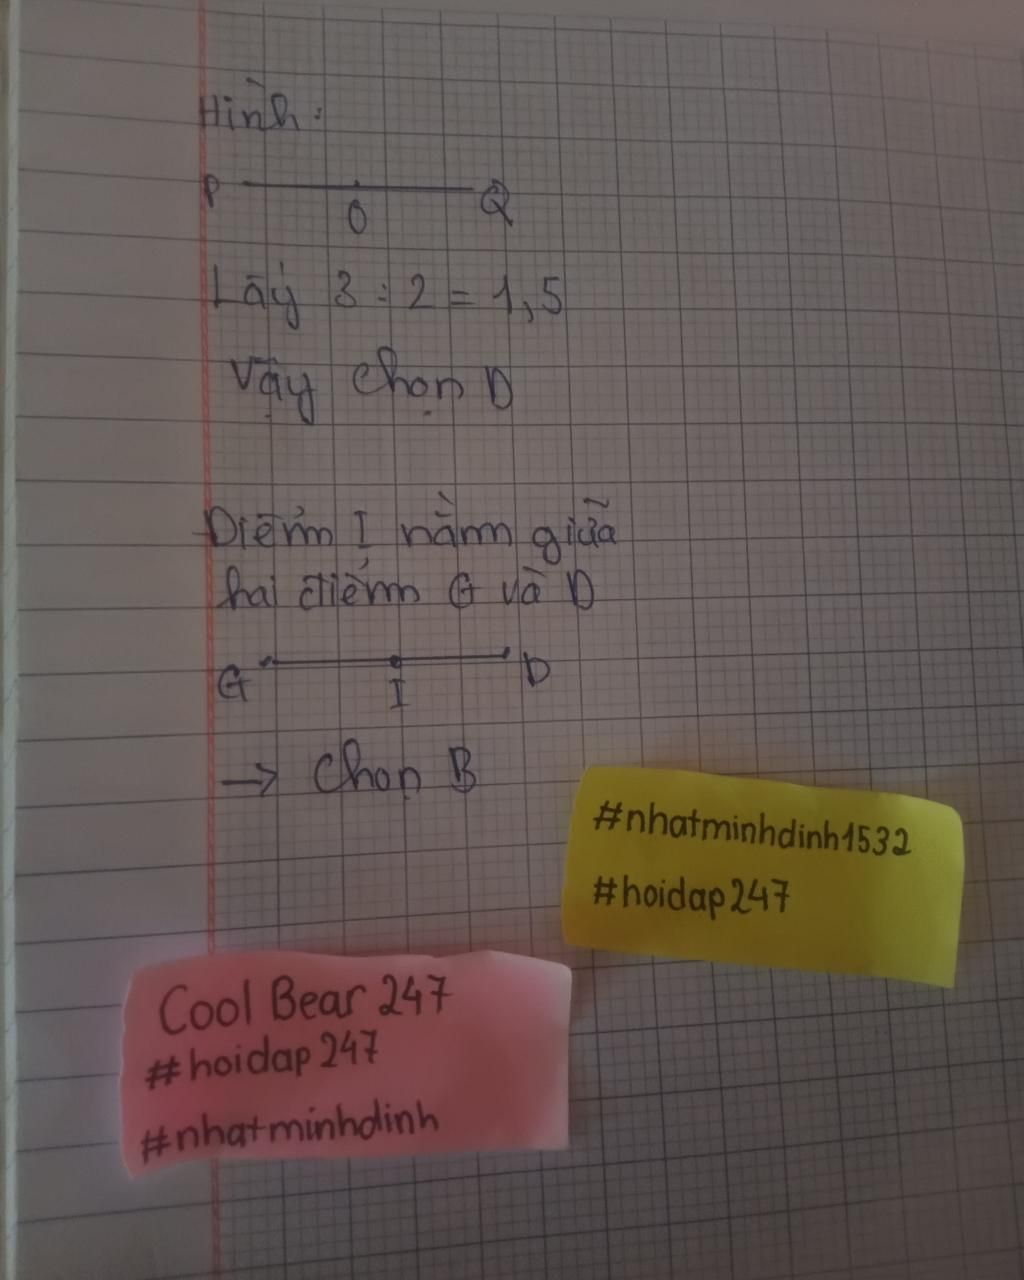 Hình:
P Q
O
Lấy 3 : 2 = 1,5
Vậy chọn D
Điểm I nằm giữa
hai điểm G và D
G I D
→ Chọn B
#nhatminhdinh1532
#hoidap247
Cool Bear 247
#hoidap247
#nhatminhdinh